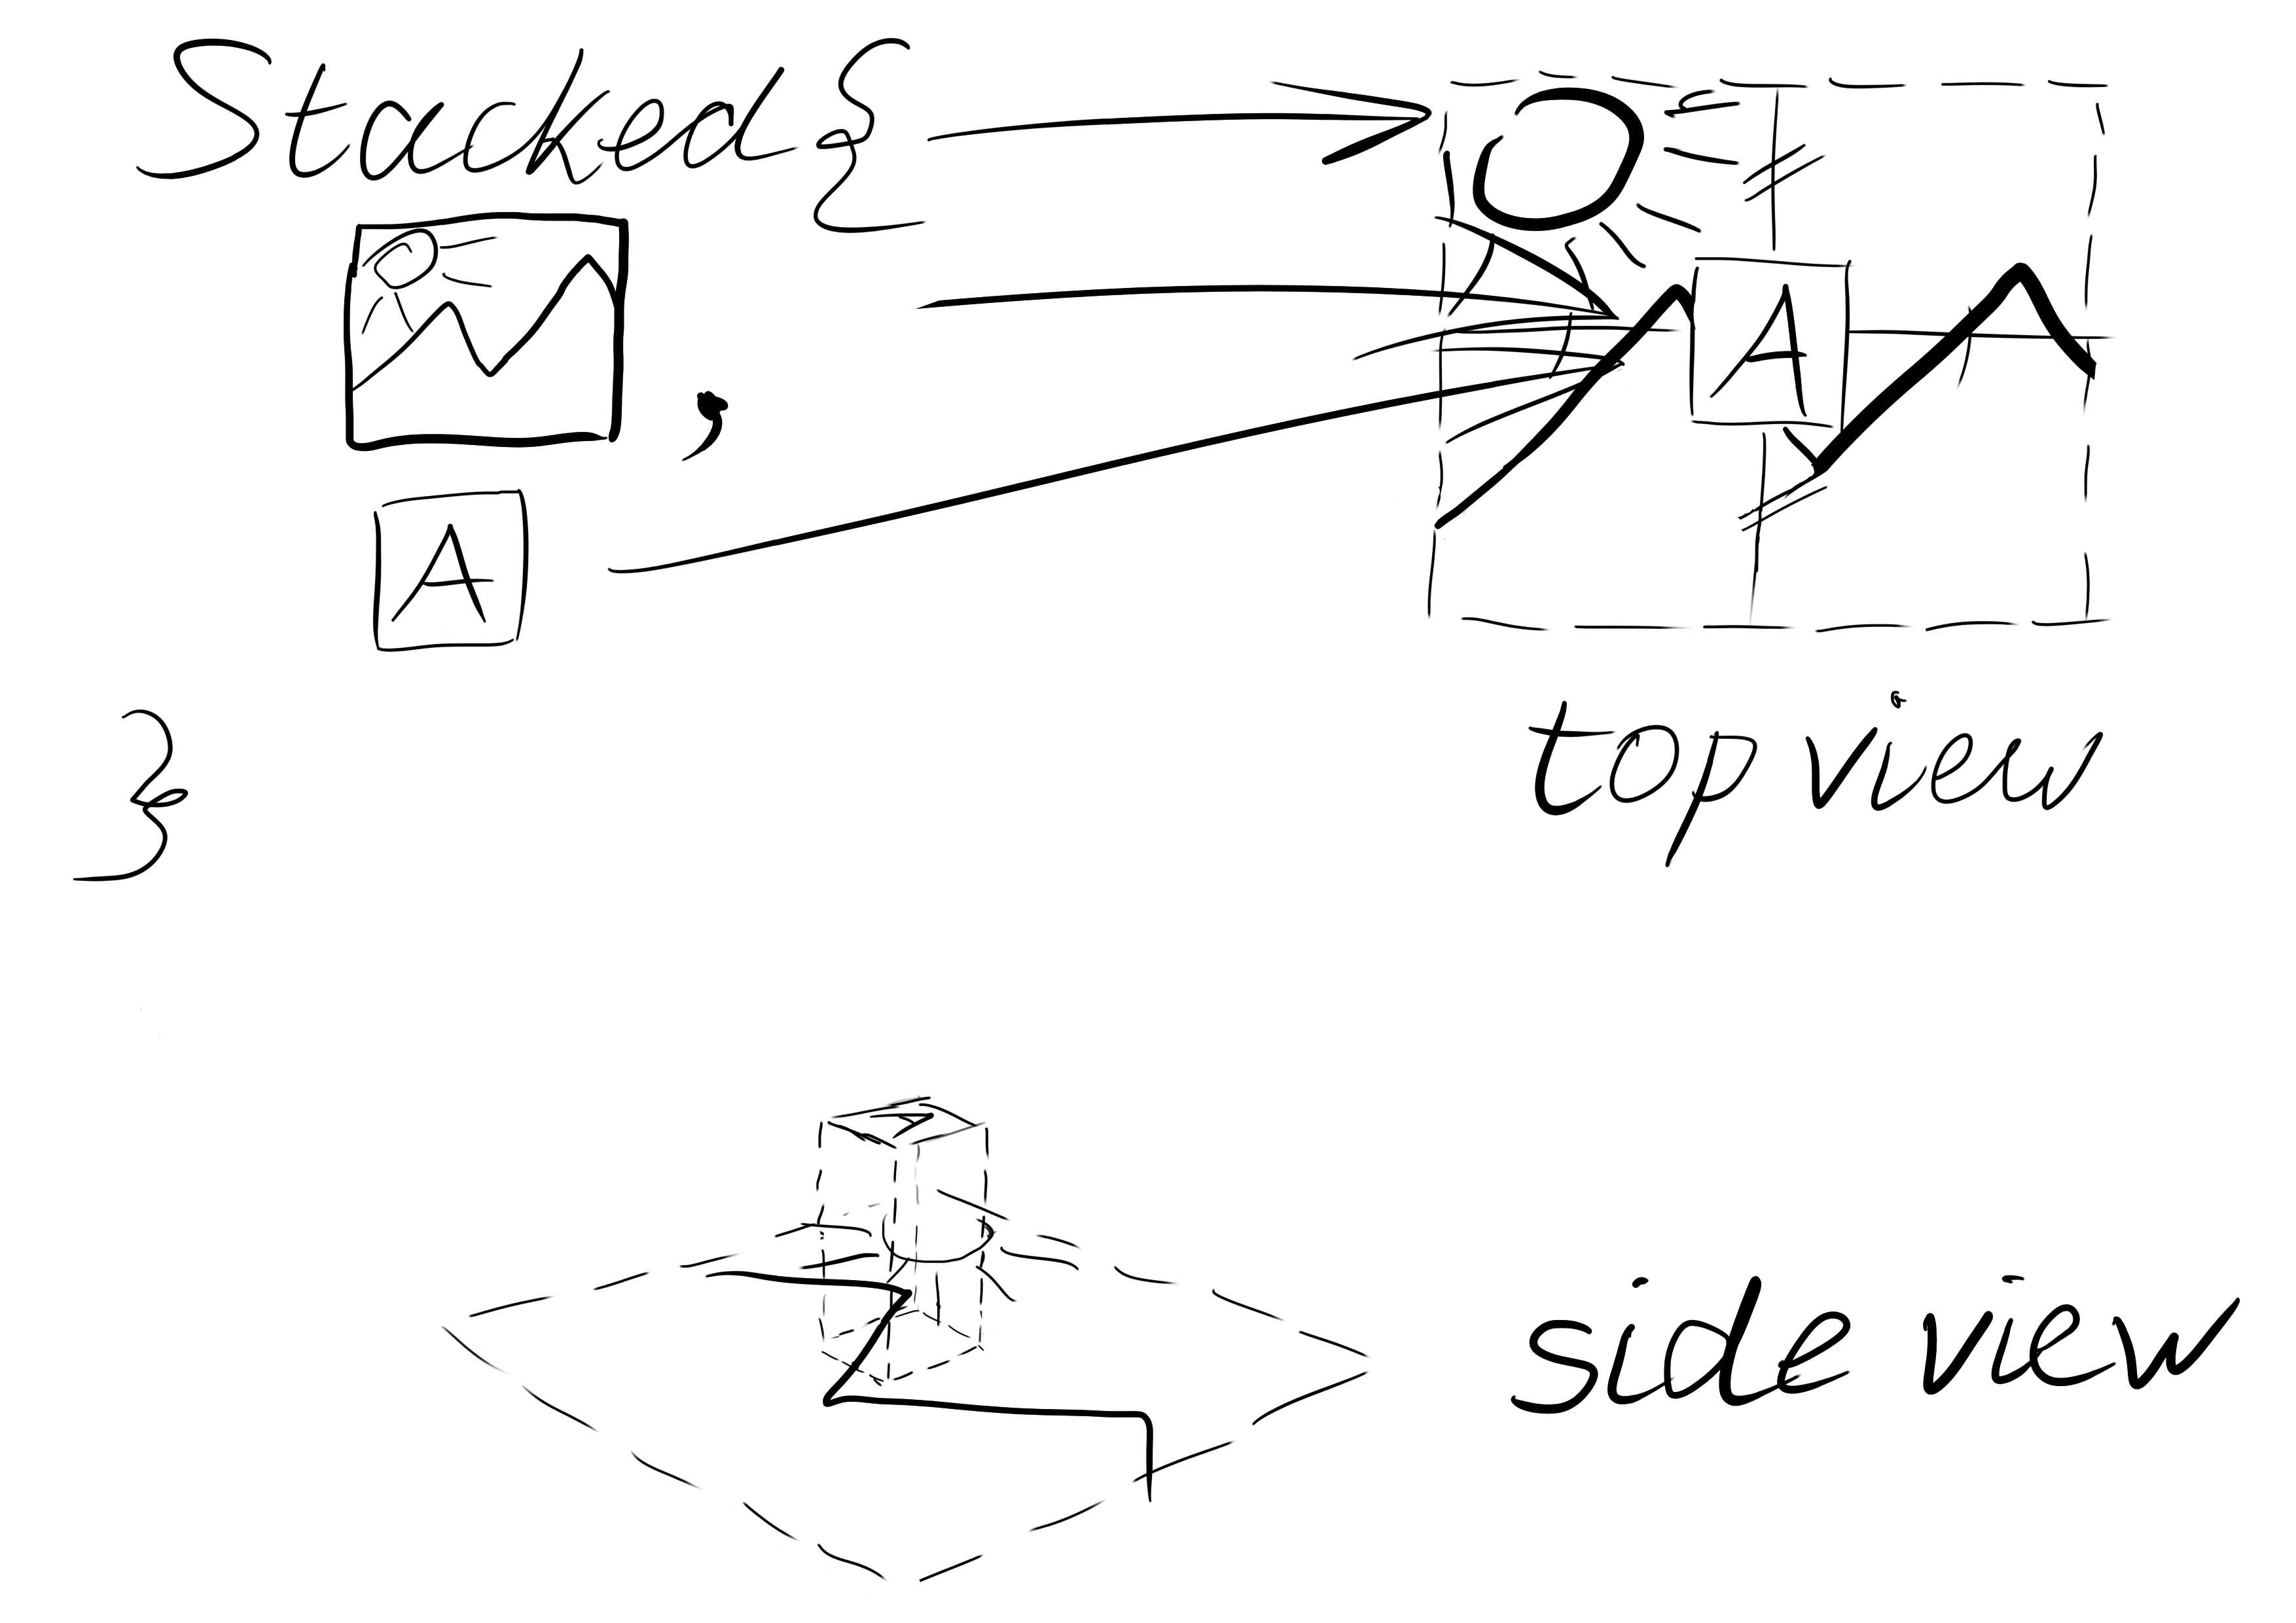 Stacked {
A
,
A
}
top view
side view
A